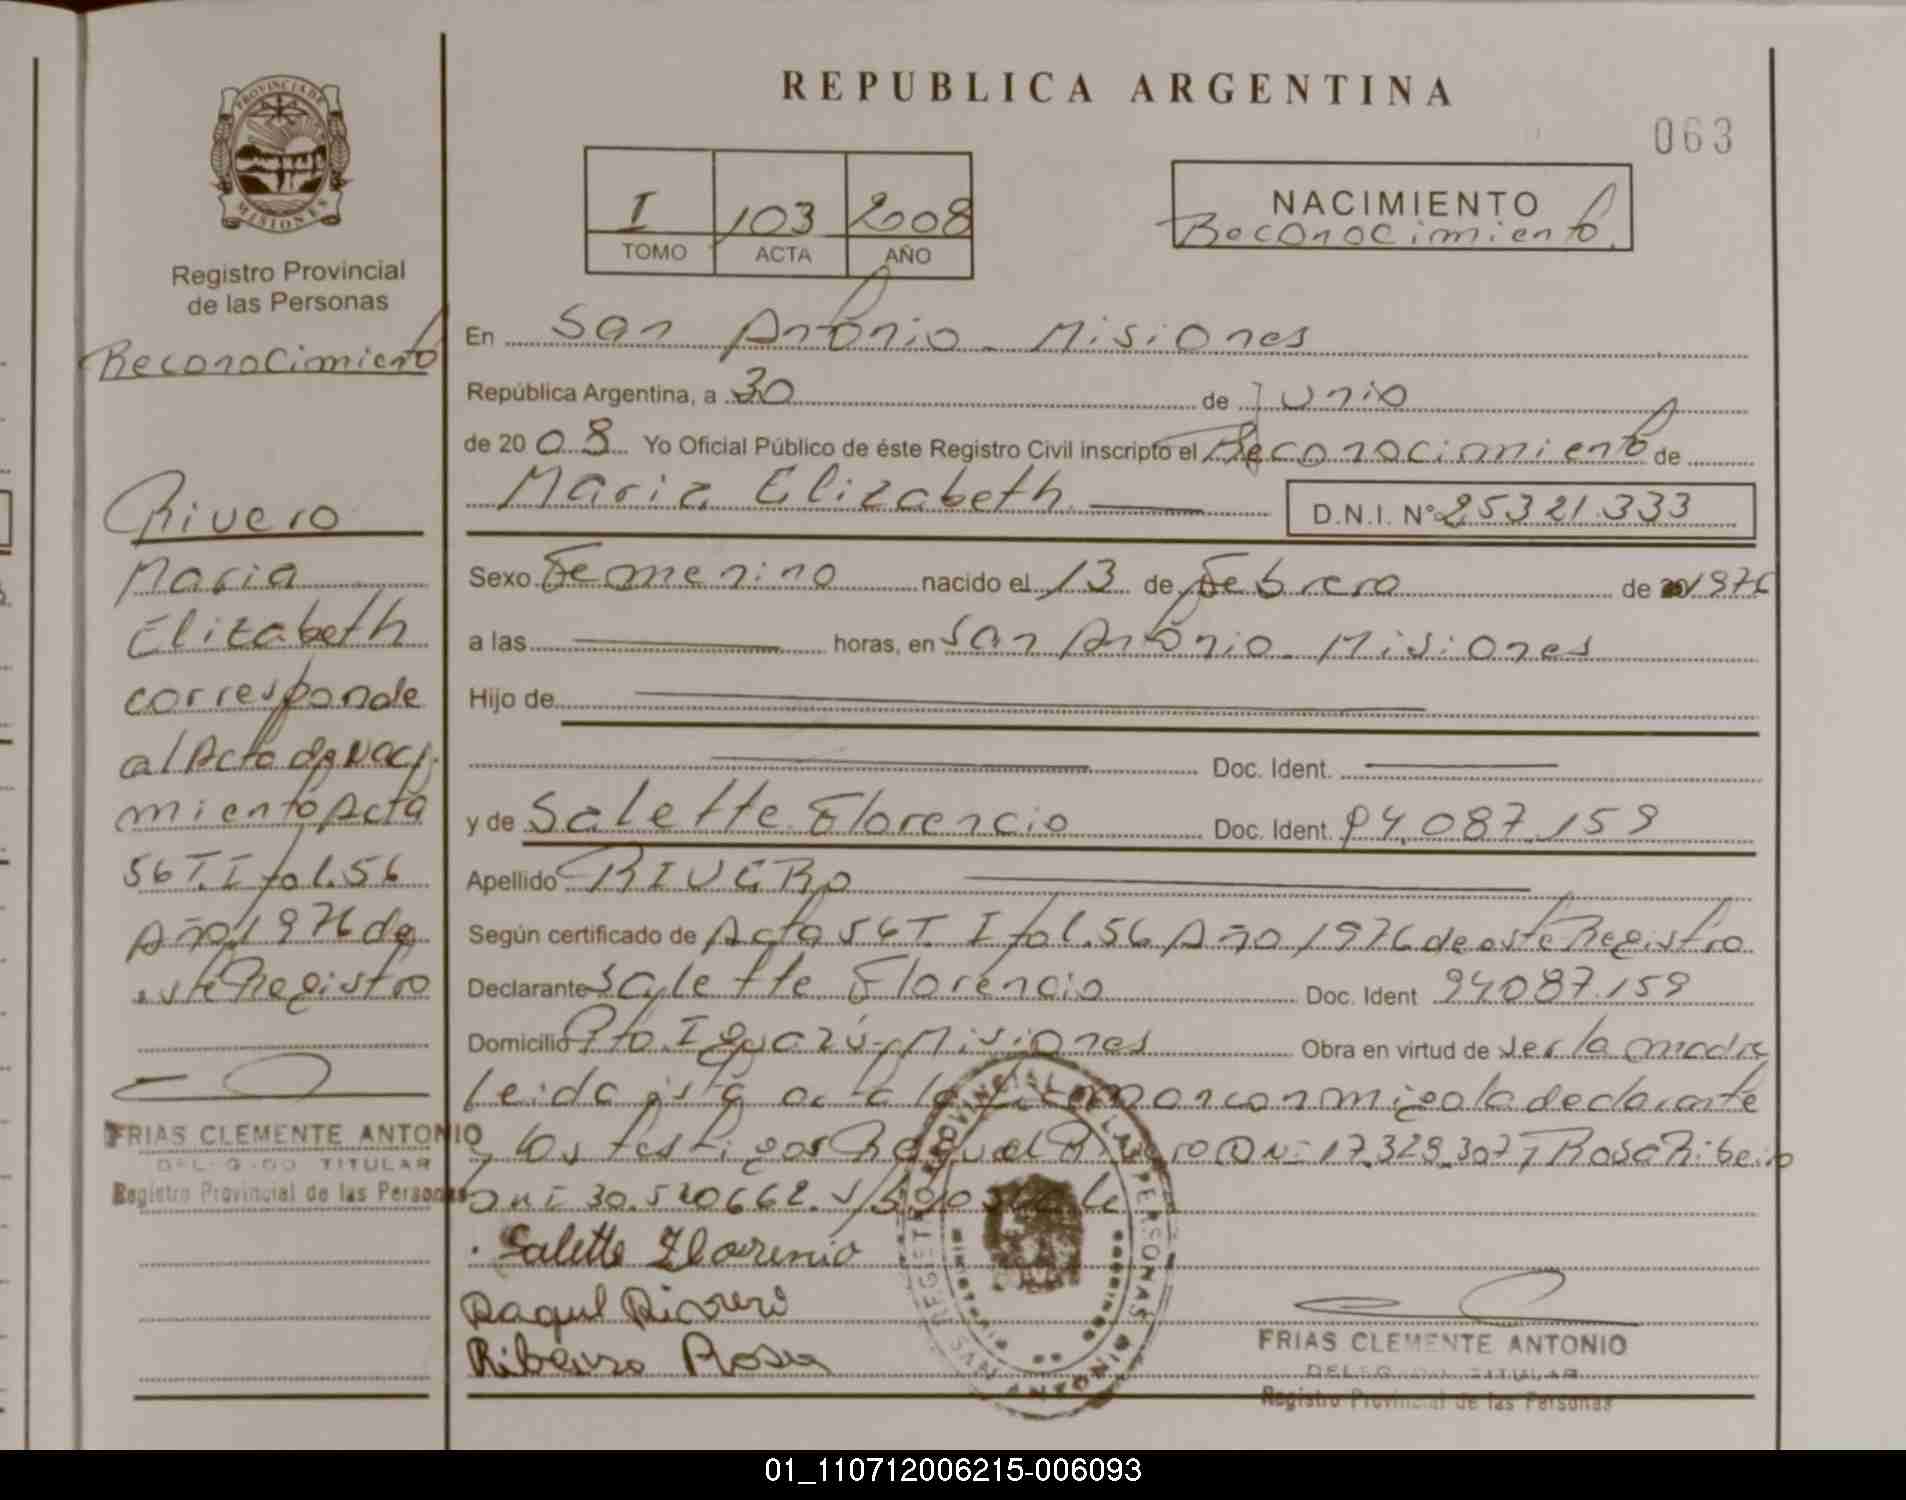 REPUBLICA ARGENTINA
063
PROVINCIA DE
MISIONES
Registro Provincial
de las Personas
Reconocimiento
Rivero
Maria
Elizabeth
corresponde
al Acta de Naci
miento Acta
56 T. I fol. 56
Año 1976 de
este Registro
FRIAS CLEMENTE ANTONIO
TITULAR
Registro Provincial de las Personas
I 103 2008
TOMO ACTA AÑO
NACIMIENTO
Reconocimiento.
En San Antonio - Misiones
República Argentina, a 30 de Junio
de 20 08 Yo Oficial Público de éste Registro Civil inscripto el Reconocimiento de
Maria Elizabeth D.N.I. N° 25321.333
Sexo Femenino nacido el 13 de Febrero de 1976
a las horas, en San Antonio - Misiones
Hijo de
Doc. Ident.
y de Salette Florencio Doc. Ident. 94.087.159
Apellido RIVERO
Según certificado de Acta 56 T. I fol. 56 Año 1976 de este Registro
Declarante Salette Florencio Doc. Ident 94087.159
Domicilio Pto. Iguazú - Misiones Obra en virtud de ser la madre
Leida esta acta la firman conmigo la declarante
y los testigos Raquel Rivero DNI 17.329.307 y Rosa Ribeiro
DNI 30.520662.
Salette Florencio
Raquel Rivero
Ribeiro Rosa
REGISTRO PROVINCIAL DE LAS PERSONAS
SAN ANTONIO
MINISTERIO
FRIAS CLEMENTE ANTONIO
TITULAR
Registro Provincial de las Personas
01_110712006215-006093